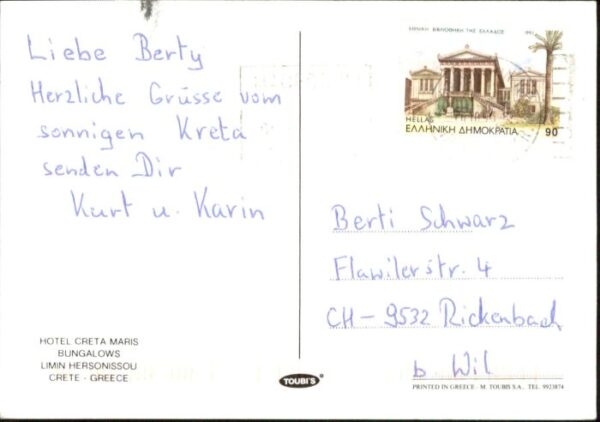 Liebe Berty
Herzliche Grüsse vom
sonnigen Kreta
senden Dir
Kurt u. Karin
HOTEL CRETA MARIS
BUNGALOWS
LIMIN HERSONISSOU
CRETE - GREECE
TOUBI'S
ΕΘΝΙΚΗ ΒΙΒΛΙΟΘΗΚΗ ΤΗΣ ΕΛΛΑΔΟΣ
HELLAS
ΕΛΛΗΝΙΚΗ ΔΗΜΟΚΡΑΤΙΑ 90
Berti Schwarz
Flawilerstr. 4
CH - 9532 Rickenbach
b. Wil
PRINTED IN GREECE - M. TOUBIS S.A. TEL. 9923874